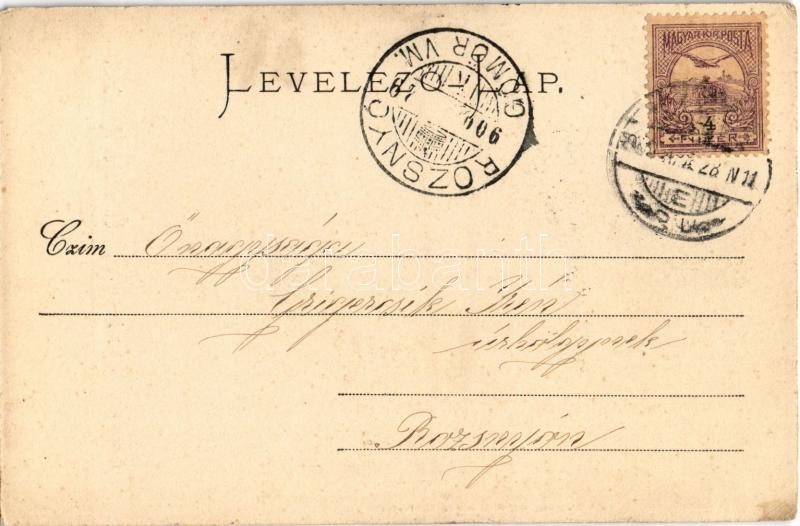 MAGYAR KIR. POSTA
4
FILLÉR
LEVELEZŐ-LAP.
ROZSNYÓ
GÖMÖR VM.
906
28 N 11
Czim Őnagysága
Irén
úrhölgynek
Rozsnyón
darabanth